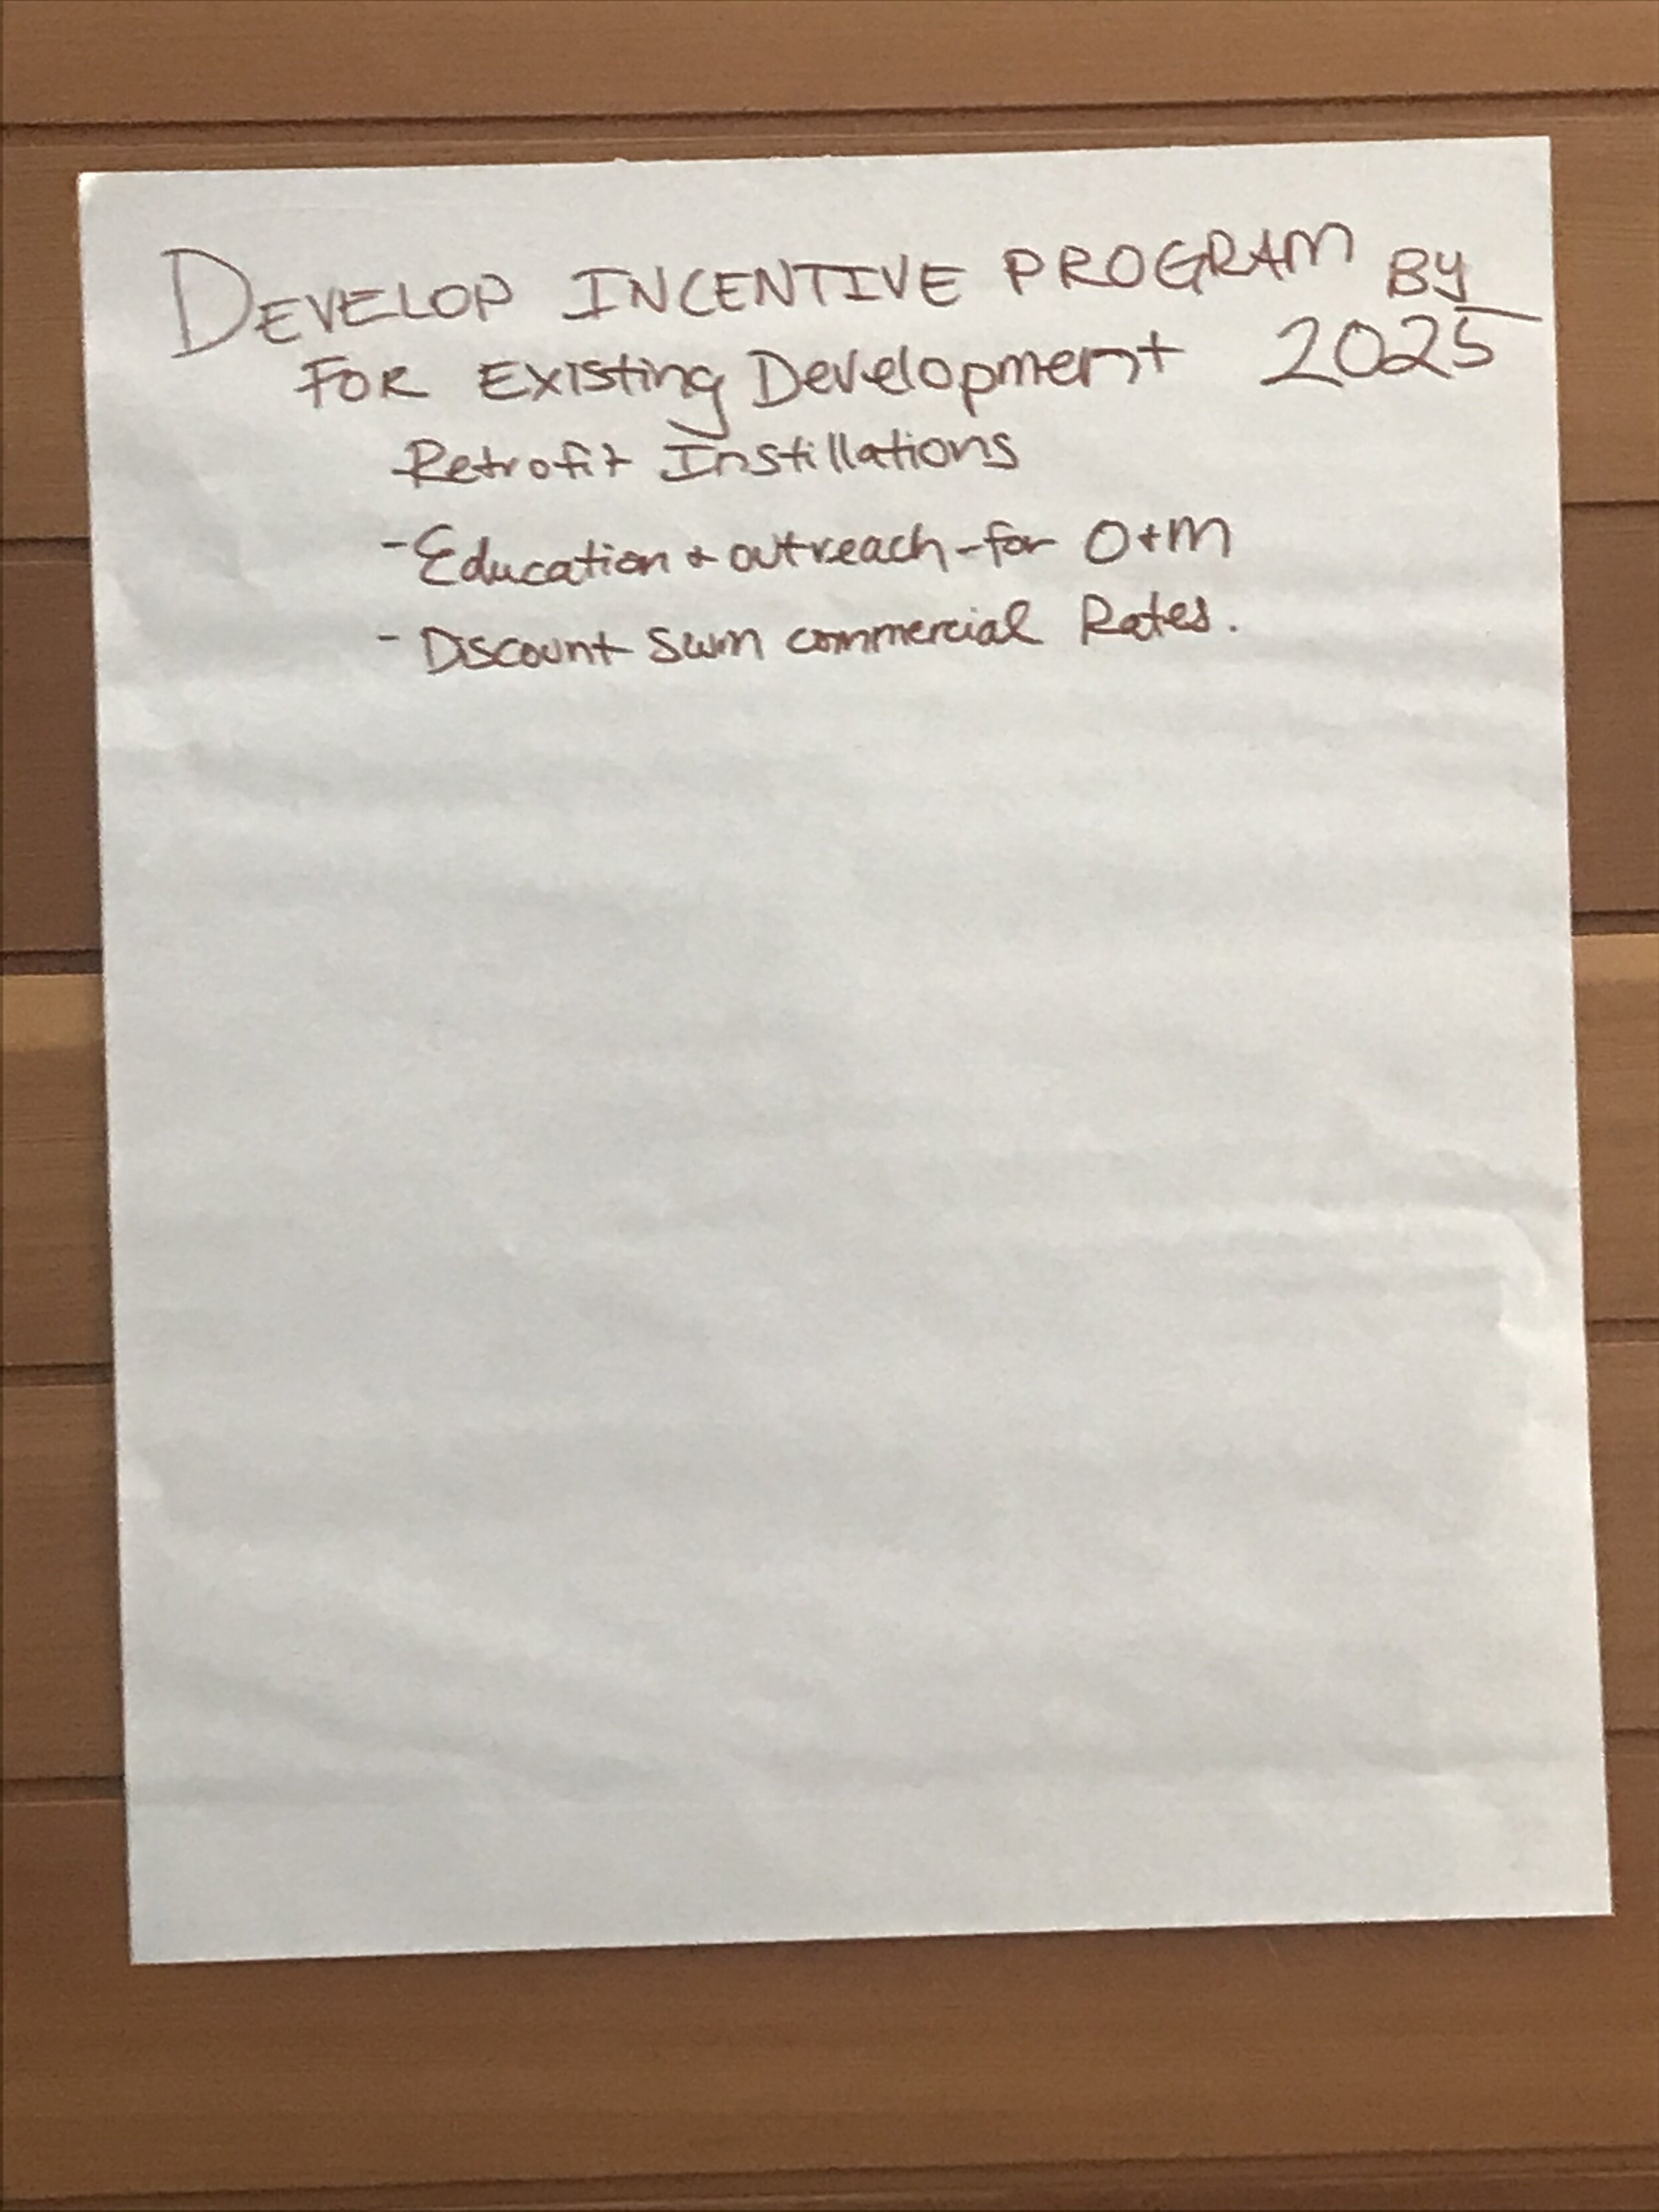 DEVELOP INCENTIVE PROGRAM BY
FOR Existing Development 2025
Retrofit Instillations
- Education + outreach - for O+M
- Discount swm commercial Rates.